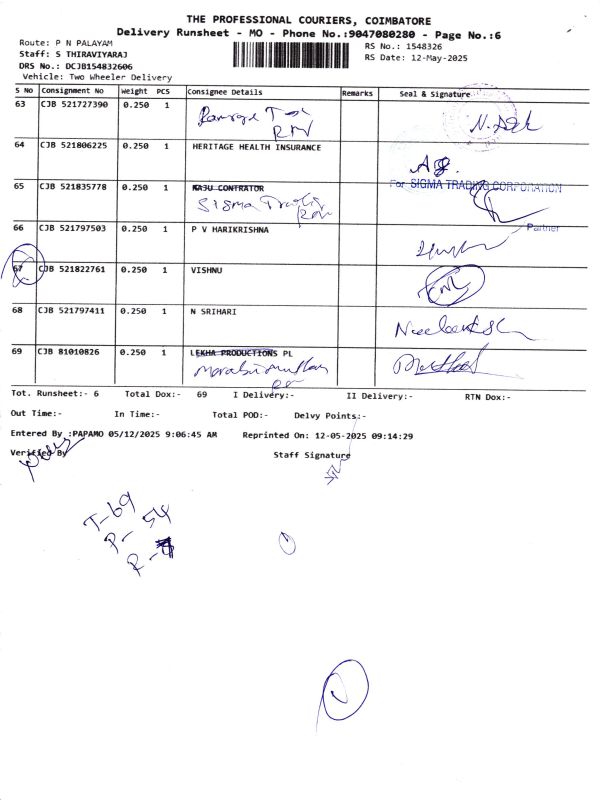 THE PROFESSIONAL COURIERS, COIMBATORE
Delivery Runsheet - MO - Phone No.:9047080280 - Page No.:6
Route: P N PALAYAM
Staff: S THIRAVIYARAJ
RS No.: 1548326
DRS No.: DCJB154832606
RS Date: 12-May-2025
Vehicle: Two Wheeler Delivery
S No Consignment No Weight PCS Consignee Details Remarks Seal & Signature
63 CJB 521727390 0.250 1
64 CJB 521806225 0.250 1 HERITAGE HEALTH INSURANCE
For SIGMA TRADING CORPORATION
65 CJB 521835778 0.250 1 RAJU CONTRATOR
Sigma
Partner
66 CJB 521797503 0.250 1 P V HARIKRISHNA
67 CJB 521822761 0.250 1 VISHNU
68 CJB 521797411 0.250 1 N SRIHARI
69 CJB 81010826 0.250 1 LEKHA PRODUCTIONS PL
Tot. Runsheet:- 6 Total Dox:- 69 I Delivery:- II Delivery:- RTN Dox:-
Out Time:- In Time:- Total POD:- Delvy Points:-
Entered By :PAPAMO 05/12/2025 9:06:45 AM Reprinted On: 12-05-2025 09:14:29
Verified By Staff Signature
T-69
P- 54